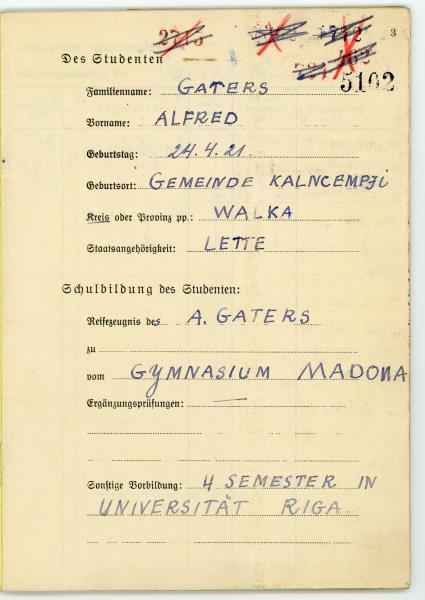 3
5102
Des Studenten
Familienname: GATERS
Vorname: ALFRED
Geburtstag: 24.4.21.
Geburtsort: GEMEINDE KALNCEMPJI
Kreis oder Provinz pp.: WALKA
Staatsangehörigkeit: LETTE
Schulbildung des Studenten:
Reifezeugnis des A. GATERS
zu
vom GYMNASIUM MADONA
Ergänzungsprüfungen: —
Sonstige Vorbildung: 4 SEMESTER IN
UNIVERSITÄT RIGA.